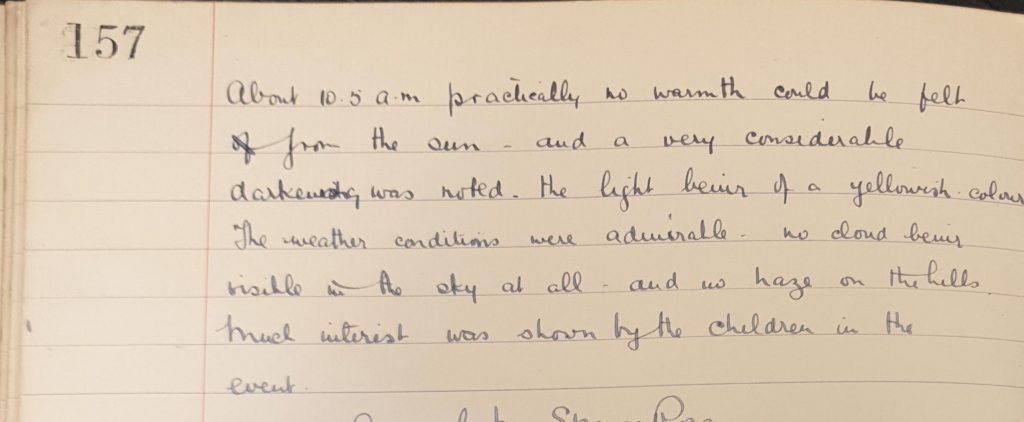 157
About 10.5 a.m practically no warmth could be felt
from the sun - and a very considerable
darkening was noted. the light being of a yellowish colour
The weather conditions were admirable - no cloud being
visible in the sky at all - and no haze on the hills.
Much interest was shown by the children in the
event.